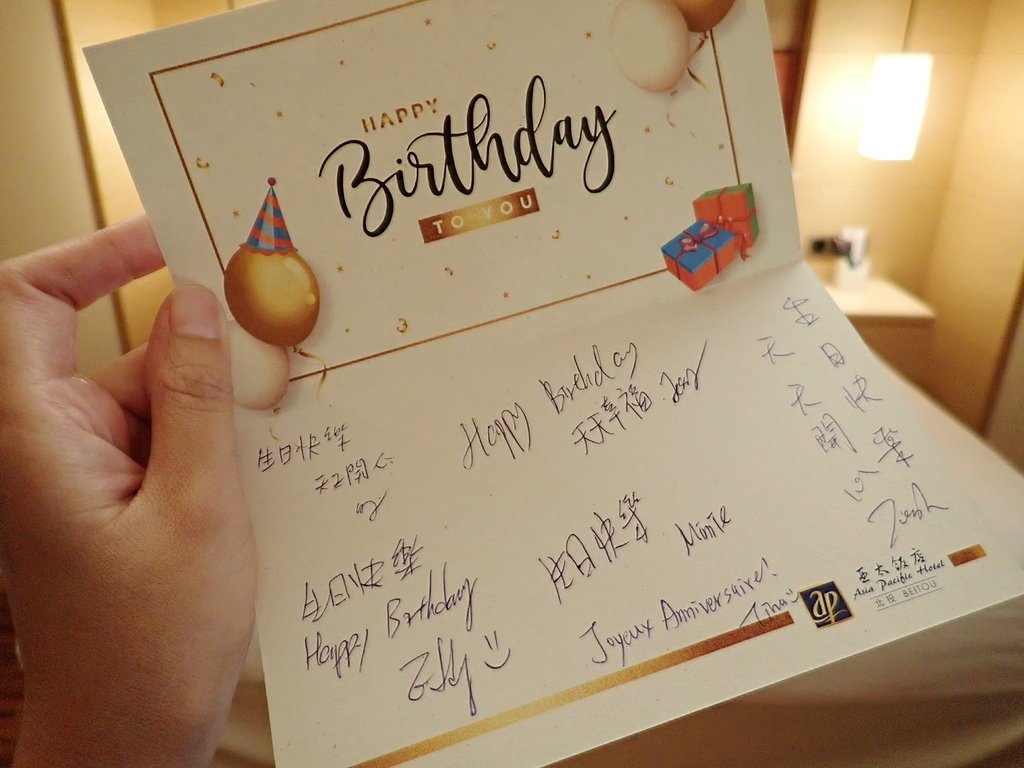 HAPPY
Birthday
TO YOU
生日快樂
天天開心
Happy Birthday
天天幸福
生日快樂
天天開心
Josh
生日快樂
Happy Birthday
生日快樂
Minnie
Joyeux Anniversaire!
Tina
ap
亞太飯店
Asia Pacific Hotel
北投·BEITOU